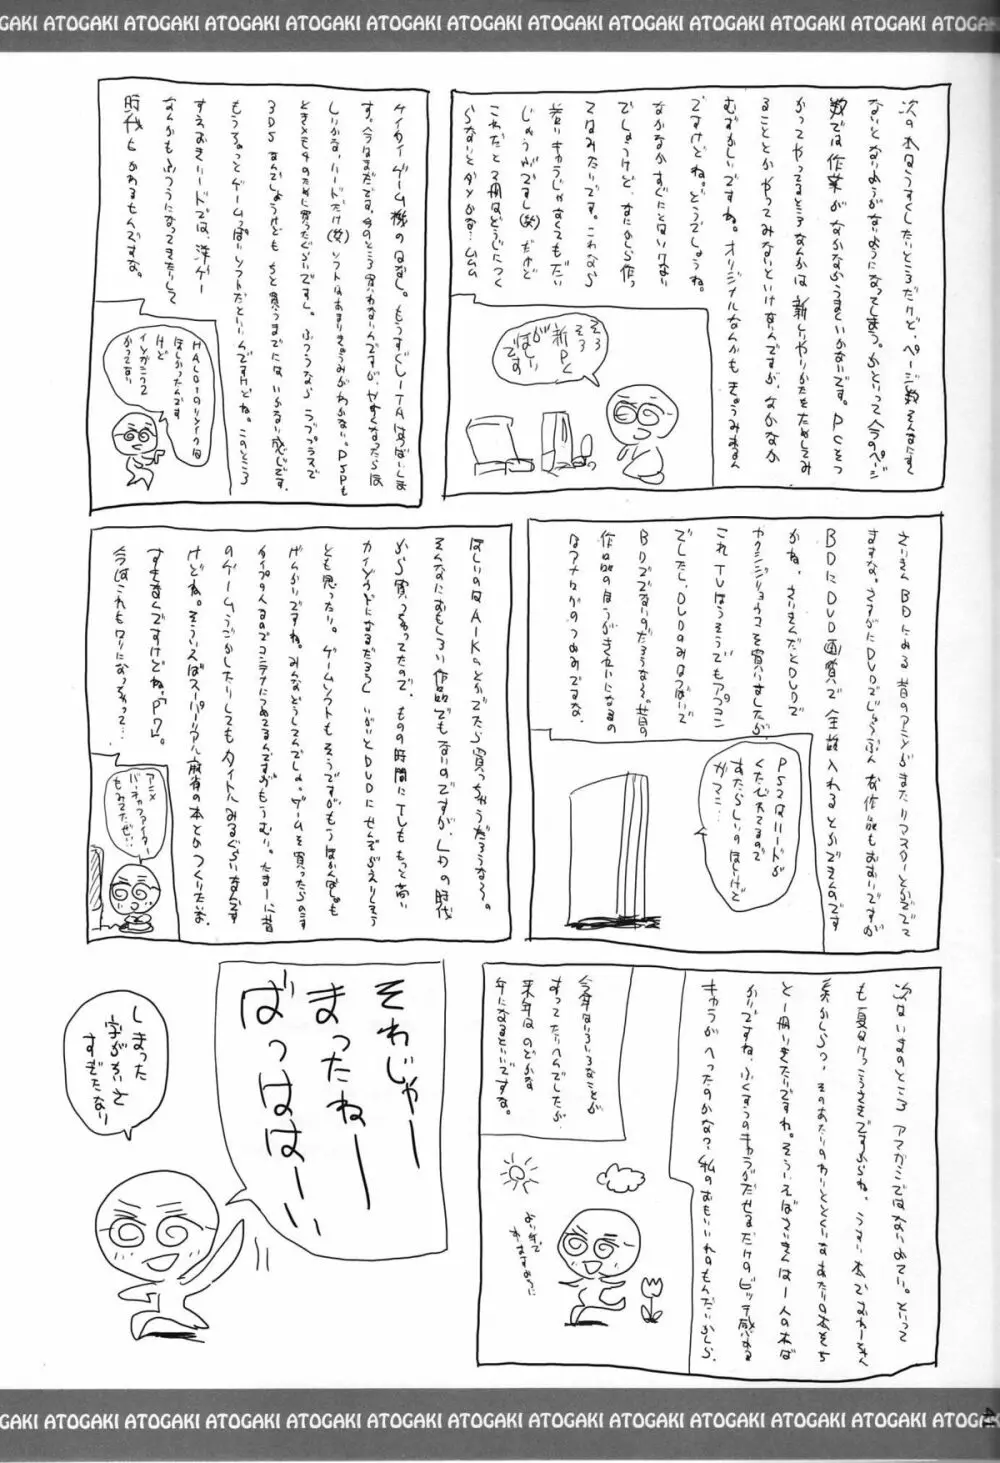 ATOGAKI ATOGAKI ATOGAKI ATOGAKI ATOGAKI ATOGAKI ATOGAKI ATOGAKI ATOGAKI
次の本はこうすくしたいところだけど、ページ数そんなにすく
ないとないようがないようになってしまう。かといって今のページ
数では作業がなかなかうまくいかないです。PCをつ
かってやってるところなんかは新しいやりかたをためしてみ
ることとかやってみないといけないんですが、なかなか
むずかしいですね。オリジナルなんかもきょうみあるん
ですけどね。どうでしょうね。
なかなかすぐにとはいけない
でしょうけど、なにかしら作っ
てはみたいです。これなら
若いキャラじゃなくてもだい
じょうぶですし(笑)だけど
これだと2冊はどうじにつく
らないとダメかな…ムムム
そろ
そろ
新PC
がほしい
です
ケイタイゲーム機のはなし。もうすぐVITAはつばいしま
す。今はまだです。今のところ買わないんですが、やすくなったらほ
しいかな、ハードだけ(笑)ソフトはあまりきょうみがわかない。PSPも
ときメモ4のために買ったぐらいですし。ふつうならラブプラスで
3DSなんでしょうけどもちと買うまでにはいかない感じです。
もうちょっとゲームっぽいソフトだといいんですけどね。このところ
すえおきハードでは、洋ゲー
なんかもふつうになってきたりして
時代もかわるもんですな。
HALO1のリメイクは
ほしかったんです
けど
インがニつで
かってない
さいきんBDにある昔のアニメがまたリマスターとかででて
ますな。さすがにDVDでじゅうぶんな作品もおおいですが
BDにDVD画質で全話入れるとかできんのです
かね。さいきんだとDVDで
ヤクシジリョウマを買いましたが
これTVほうそうでもアプコン
でしたし、DVDのみはつばいで
BDででないのだろうな〜。昔の
作品のほうがきれいになるの
はアナログのつよみですな。
PS2はハードが
くたびれてるので
あたらしいのほしいけど
ガマン…
ほしいのはAIKのとかでたら買っちゃうだろうな〜。
そんなにおもしろい作品でもないのですが、LDの時代
から買っちゃってたので、ものの時間にしてももっと高い
カイゾウドになるだろうし いがいとDVDにせんぞがえりしそう
とも思ったり。ゲームソフトもそうですがもうほかんばしょも
げんかいですね。みんなどうしてんでしょ。ゲームを買ったらのこす
タイプの人なのでコンテナにつめてるんですがもうむり。たまーに昔
のゲームうごかしたりしてもタイトルみるぐらいなんです
けどね。そういえばスーパーリアル麻雀の本とかつくりたいな。
すきなんですけどねP7。
今はこれもワリになっちゃって…
アニメ
バーチャファイター
もみてたぜい…
次はいまのところアマガミではないよてい。といって
も夏はけっこうさきですからね。うすい本でおわーらく
そのあたりのわいととくいなあたりの本をち
と一冊いきたいですね。そういえばさいきんは1人の本ば
かりですね、ふくすうのキャラがだせるだけのピッチ感ある
キャラがへったのかな?私のおもいいれのもんだいかしら。
今年はいろいろなことが
あってたいへんでしたが、
来年はのどかな
年になるといいですな。
よい年で
ありますように
それじゃー
まったねー
ばっははーい
しまった
字がちいさ
すぎたなり
ATOGAKI ATOGAKI ATOGAKI ATOGAKI ATOGAKI ATOGAKI ATOGAKI ATOGAKI ATOGAKI
41